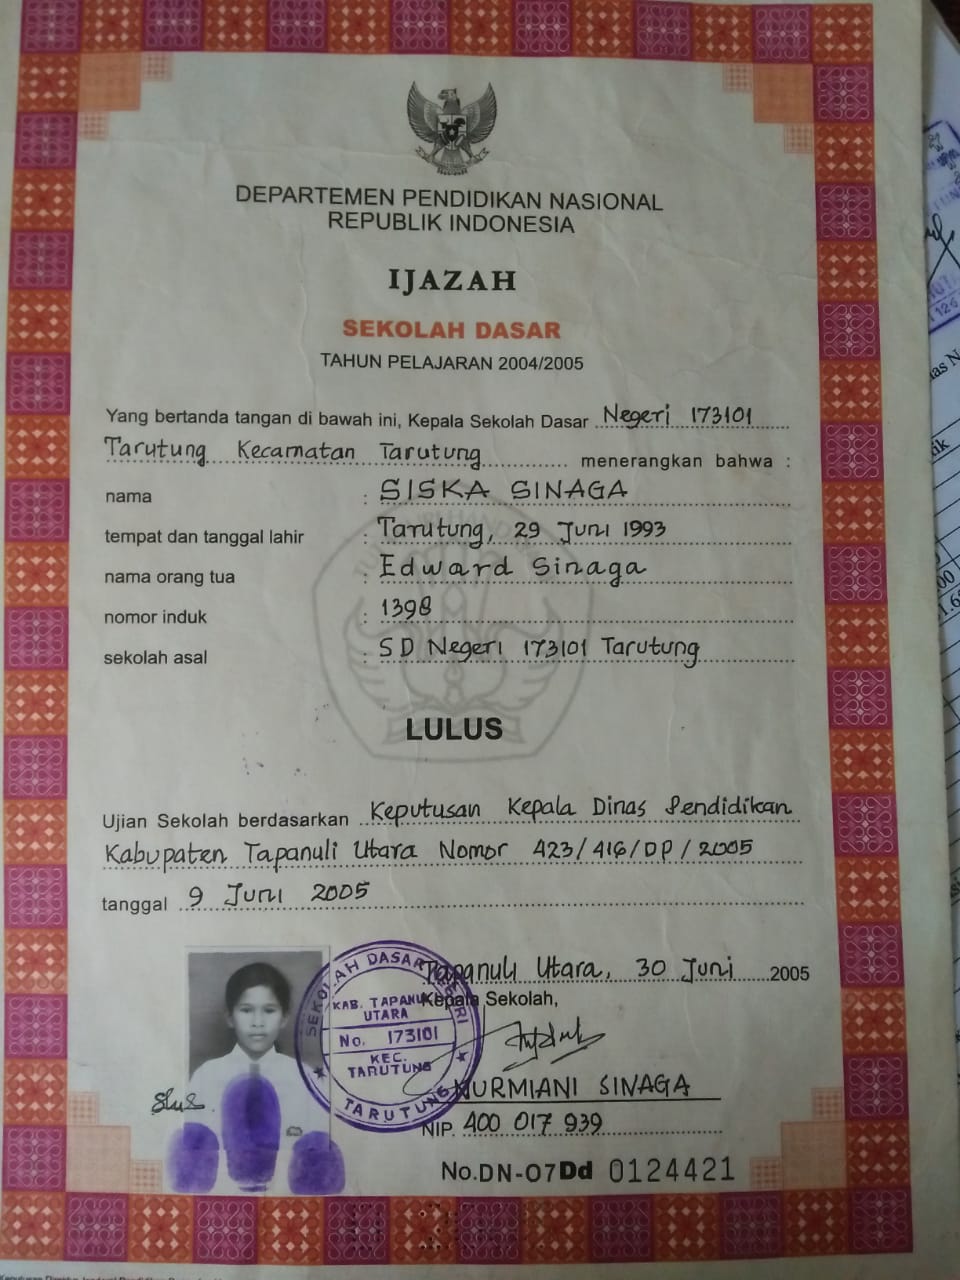 DEPARTEMEN PENDIDIKAN NASIONAL
REPUBLIK INDONESIA
IJAZAH
SEKOLAH DASAR
TAHUN PELAJARAN 2004/2005
Yang bertanda tangan di bawah ini, Kepala Sekolah Dasar Negeri 173101
Tarutung Kecamatan Tarutung menerangkan bahwa :
nama : SISKA SINAGA
tempat dan tanggal lahir : Tarutung, 29 Juni 1993
nama orang tua : Edward Sinaga
nomor induk : 1398
sekolah asal : SD Negeri 173101 Tarutung
LULUS
Ujian Sekolah berdasarkan Keputusan Kepala Dinas Pendidikan
Kabupaten Tapanuli Utara Nomor 423/416/DP/2005
tanggal 9 Juni 2005
Tapanuli Utara, 30 Juni 2005
Kepala Sekolah,
SEKOLAH DASAR NEGERI
KAB. TAPANULI
UTARA
No. 173101
KEC.
TARUTUNG
TARUTUNG
NURMIANI SINAGA
NIP. 400 017 939
No.DN-07Dd 0124421